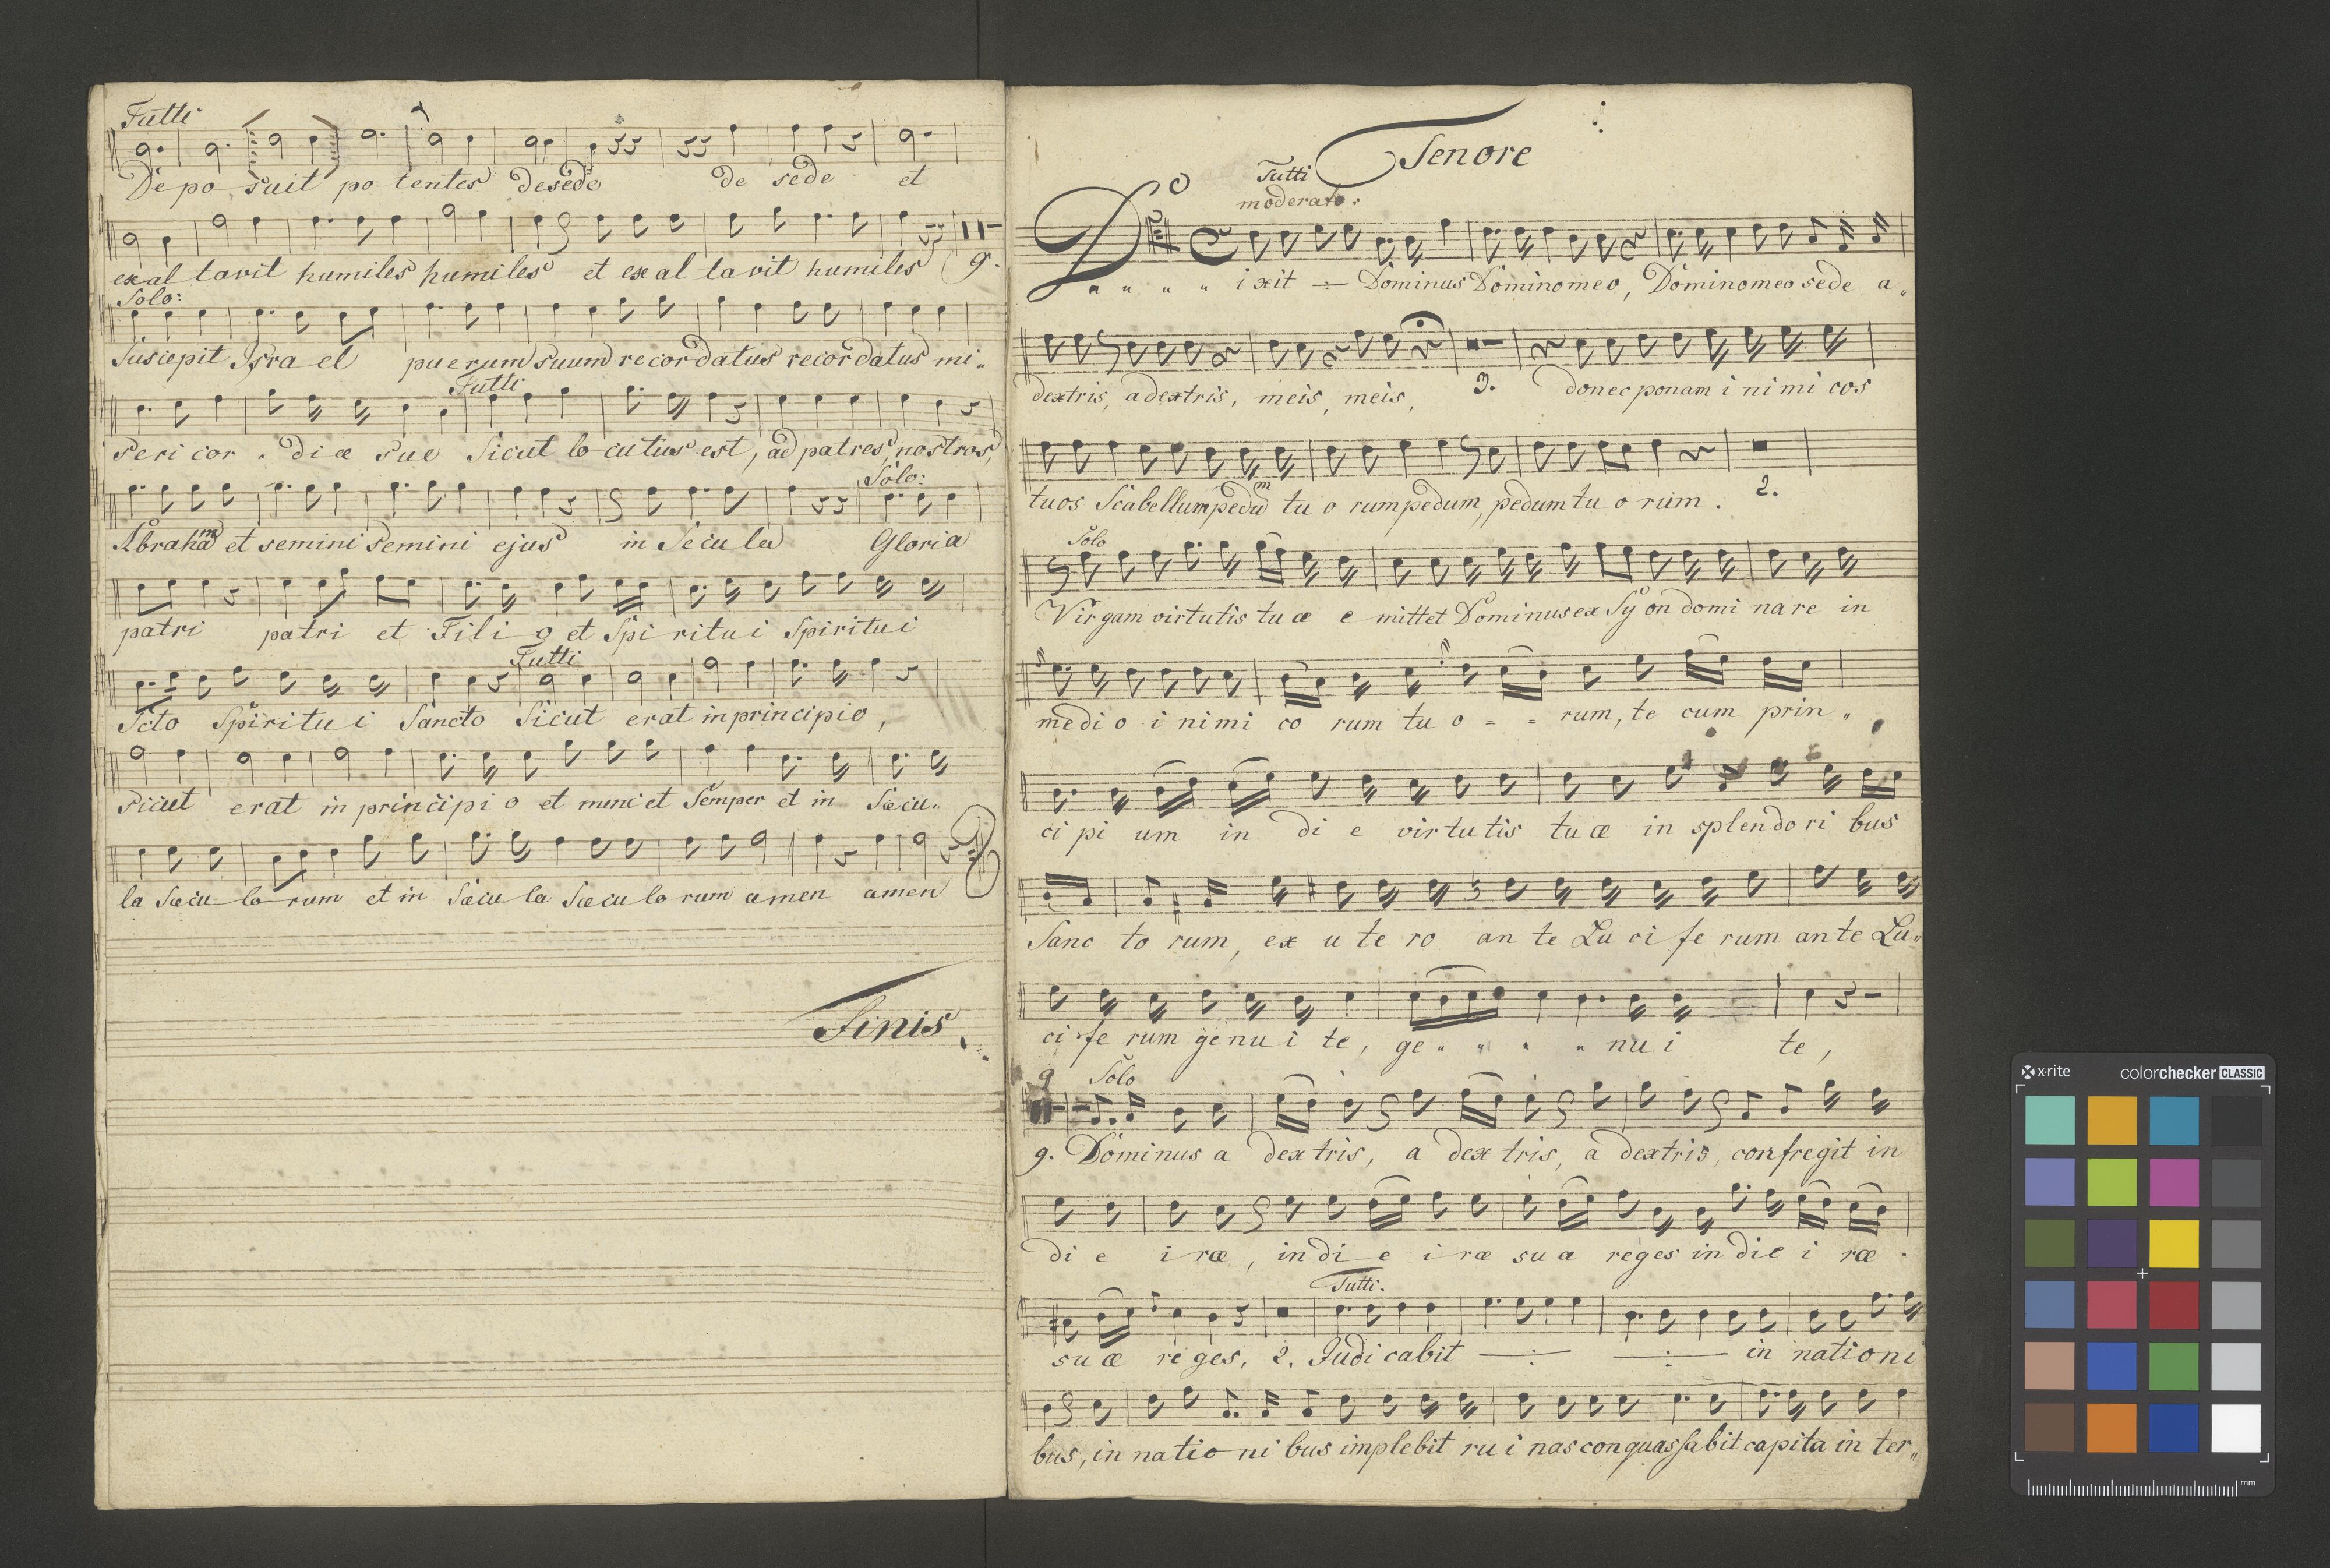 Tutti
De po suit po tentes de sede de sede et
ex al tavit humiles humiles et ex al tavit humiles 9.
Solo:
Suscepit Isra el puerum suum recordatus recordatus mi„
seri cor . di æ sue Sicut lo cutus est, ad patres, nostros,
Tutti
Solo:
Abraham et semini semini ejus in Secula Gloria
patri patri et Fili o et Spi ritui Spiritui
Tutti
Scto Spiritu i Sancto Sicut erat in principio,
Sicut erat in principi o et nunc et Semper et in Sæcu„
la Sæcu lo rum et in Sæcu la Sæcu lo rum amen amen
Finis
Tenore
Tutti
moderato:
D„ „ „ „ ixit ÷ Dominus Domino meo, Domino meo sede a„
dextris, a dextris, meis, meis, 3. donec ponam i ni mi cos
tuos Scabellum pedum tu o rum pedum, pedum tu o rum. 2.
Solo
Virgam virtutis tu æ e mittet Dominus ex Syon domi na re in
medi o i nimi co rum tu o - - rum, te cum prin„
ci pi um in di e virtutis tu æ in splendori bus
Sanc to rum, ex u te ro an te Lu ci fe rum ante Lu„
ci fe rum ge nu i te, ge „ „ „ „ nu i te,
9 Solo
9. Dominus a dex tris, a dex tris, a dextris, confregit in
di e i ræ, in di e i ræ su a reges in die i ræ .
Tutti.
su æ re ges, 2. Judi cabit ÷ ÷ in nationi
bus, in natio ni bus implebit ru i nas conquassabit capita in ter„
x-rite colorchecker CLASSIC
mm